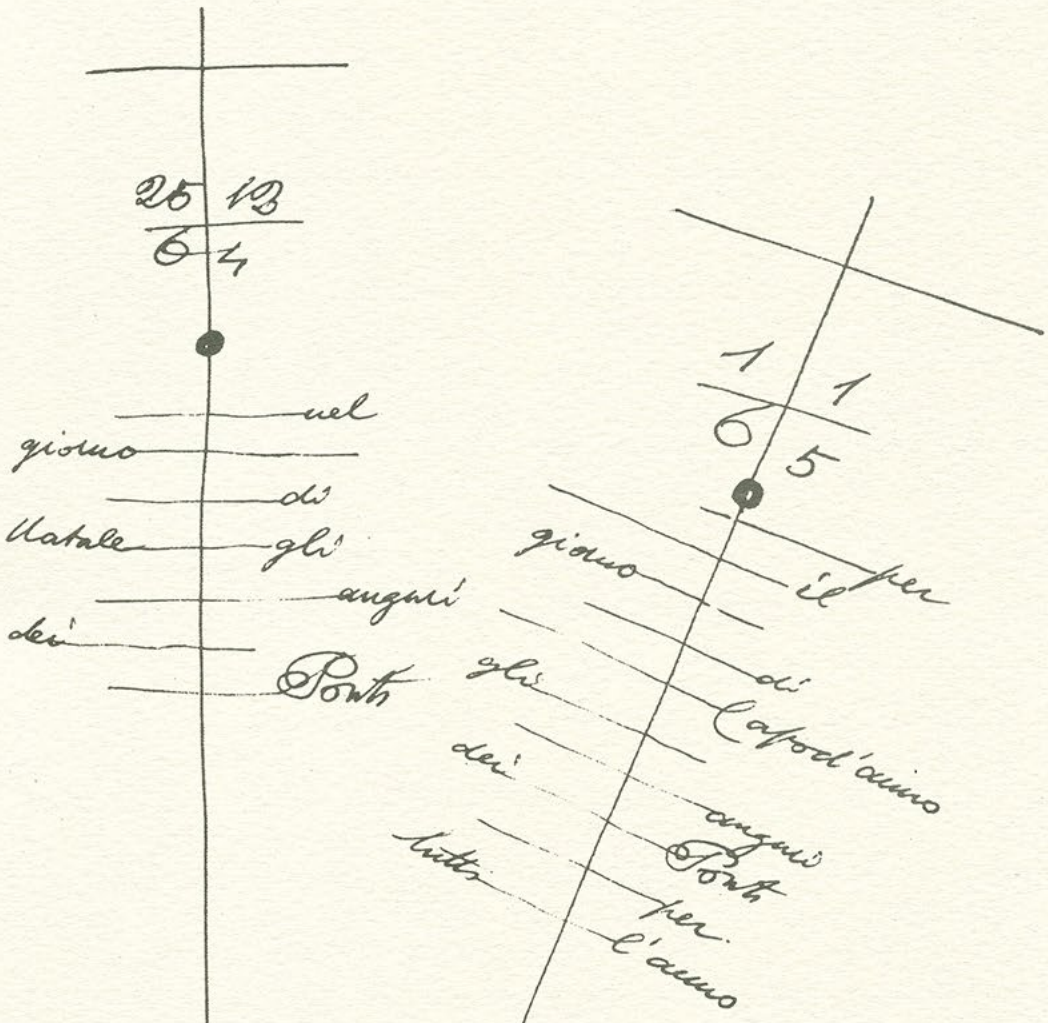 25 12
6 4
nel
giorno
di
Natale gli
auguri
dei
Ponti
1 1
6 5
per
il
giorno
di
Capod'anno
gli
auguri
dei Ponti
per
tutto l'anno